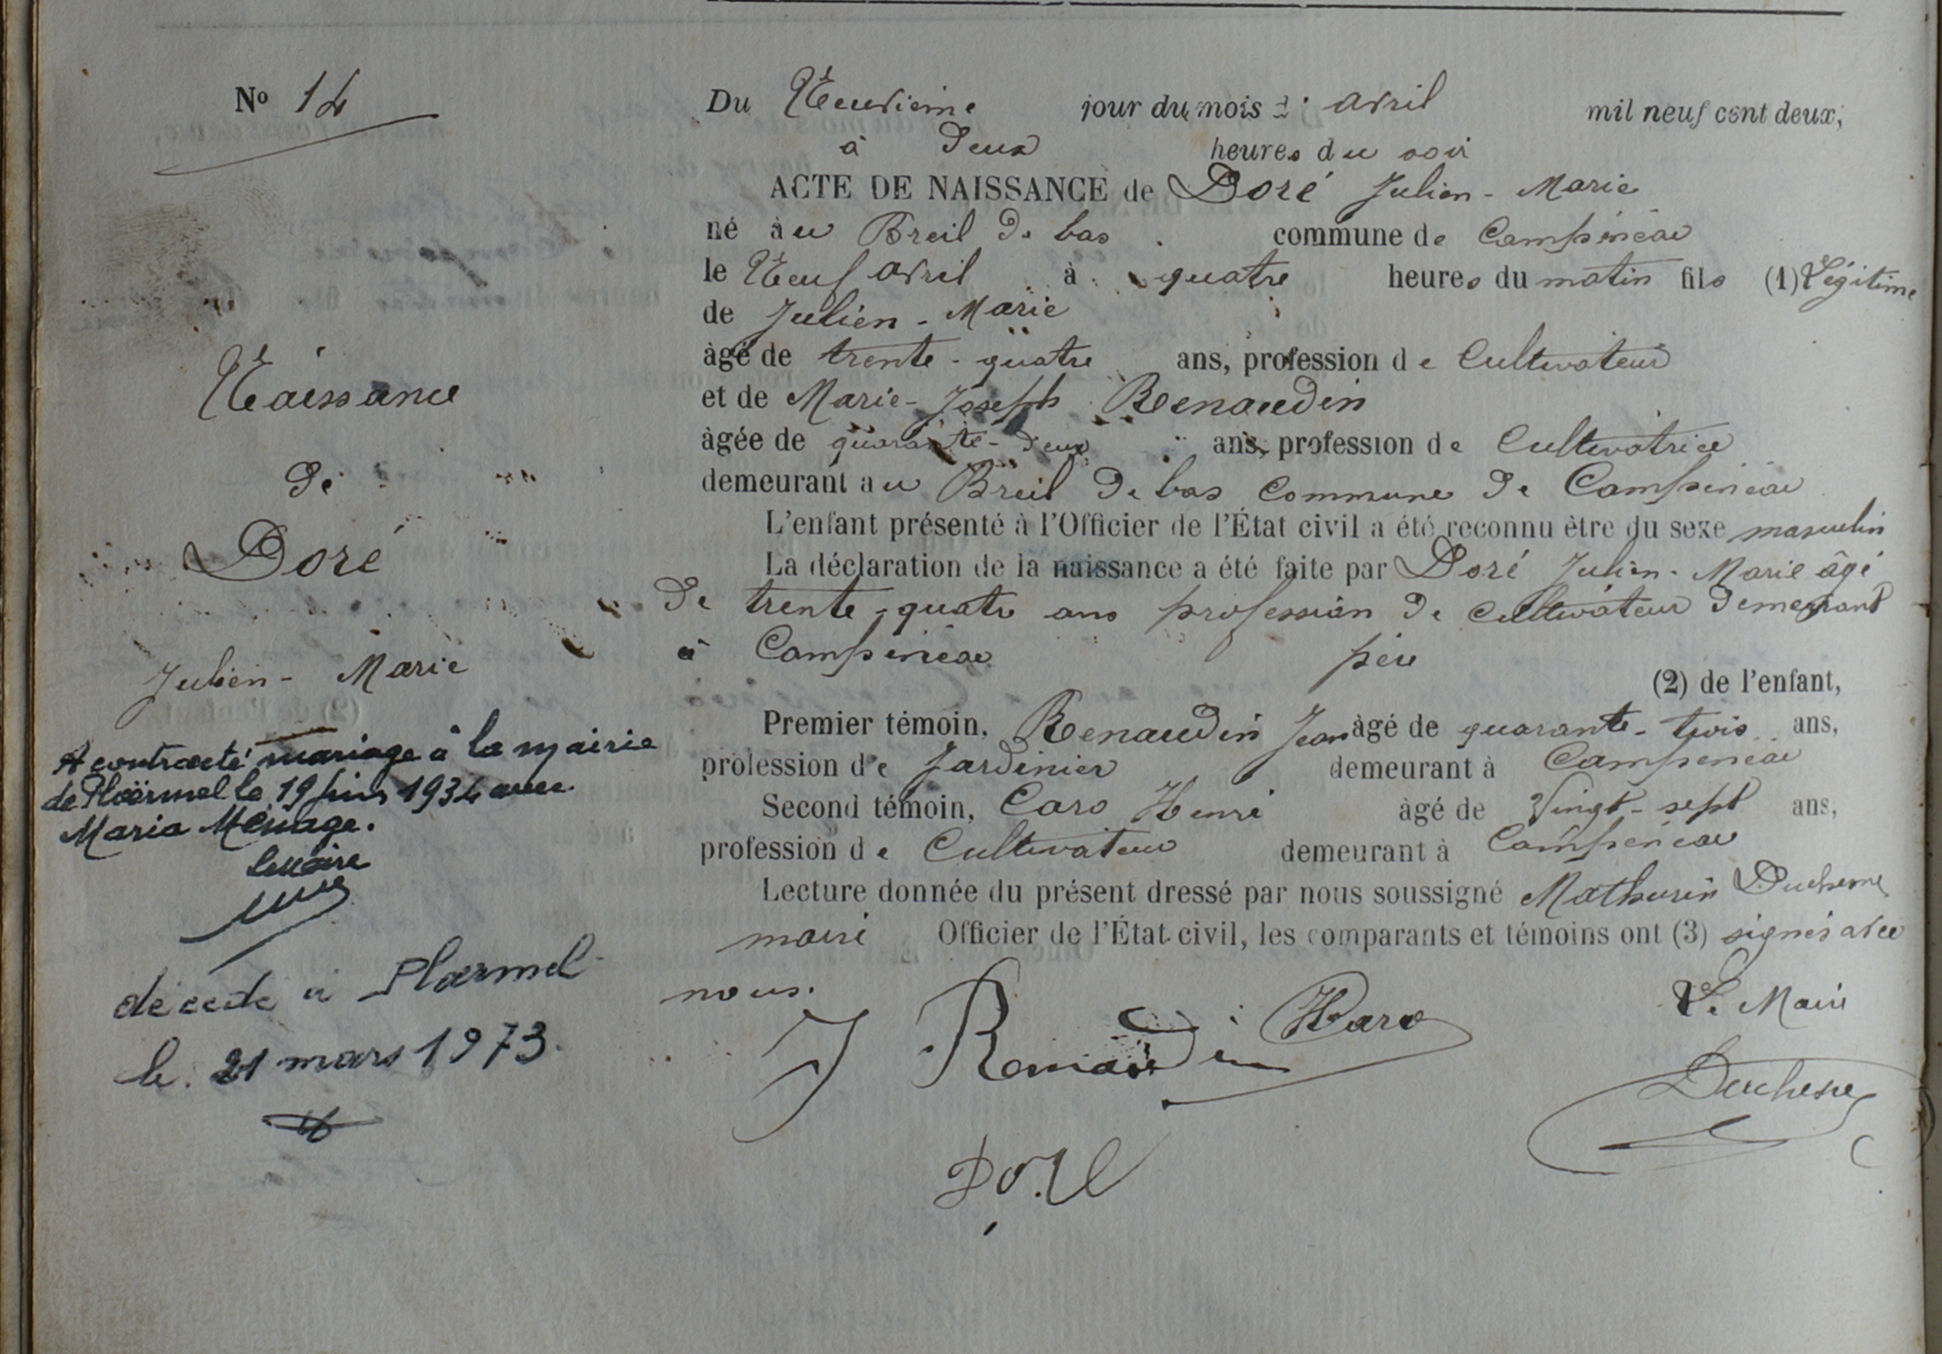 Nº 14
Du Neuvième jour du mois d' avril mil neuf cent deux,
à deux heures du soir
ACTE DE NAISSANCE de Doré Julien - Marie
né au Breil de bas commune de Campénéac
le Neuf avril à quatre heures du matin fils (1) Légitime
de Julien - Marie
âgé de trente - quatre ans, profession de Cultivateur
et de Marie - Joseph Renaudin
âgée de quarante - deux ans, profession de Cultivatrice
demeurant au Breil de bas commune de Campénéac
L'enfant présenté à l'Officier de l'État civil a été reconnu être du sexe masculin
La déclaration de la naissance a été faite par Doré Julien - Marie âgé
de trente - quatre ans profession de cultivateur demeurant
à Campénéac père
(2) de l'enfant,
Premier témoin, Renaudin Jean âgé de quarante - trois ans,
profession de Jardinier demeurant à Campénéac
Second témoin, Caro Henri âgé de Vingt - sept ans,
profession de Cultivateur demeurant à Campénéac
Lecture donnée du présent dressé par nous soussigné Mathurin Duchesne
maire Officier de l'État civil, les comparants et témoins ont (3) signés avec
nous.
Naissance
de
Doré
Julien - Marie
A contracté mariage à la mairie
de Ploërmel le 19 juin 1934 avec
Maria Ménage.
Le maire
décédé à Ploërmel
le 21 mars 1973.
J Renaudin HCaro
Le Maire
Duchesne
Doré